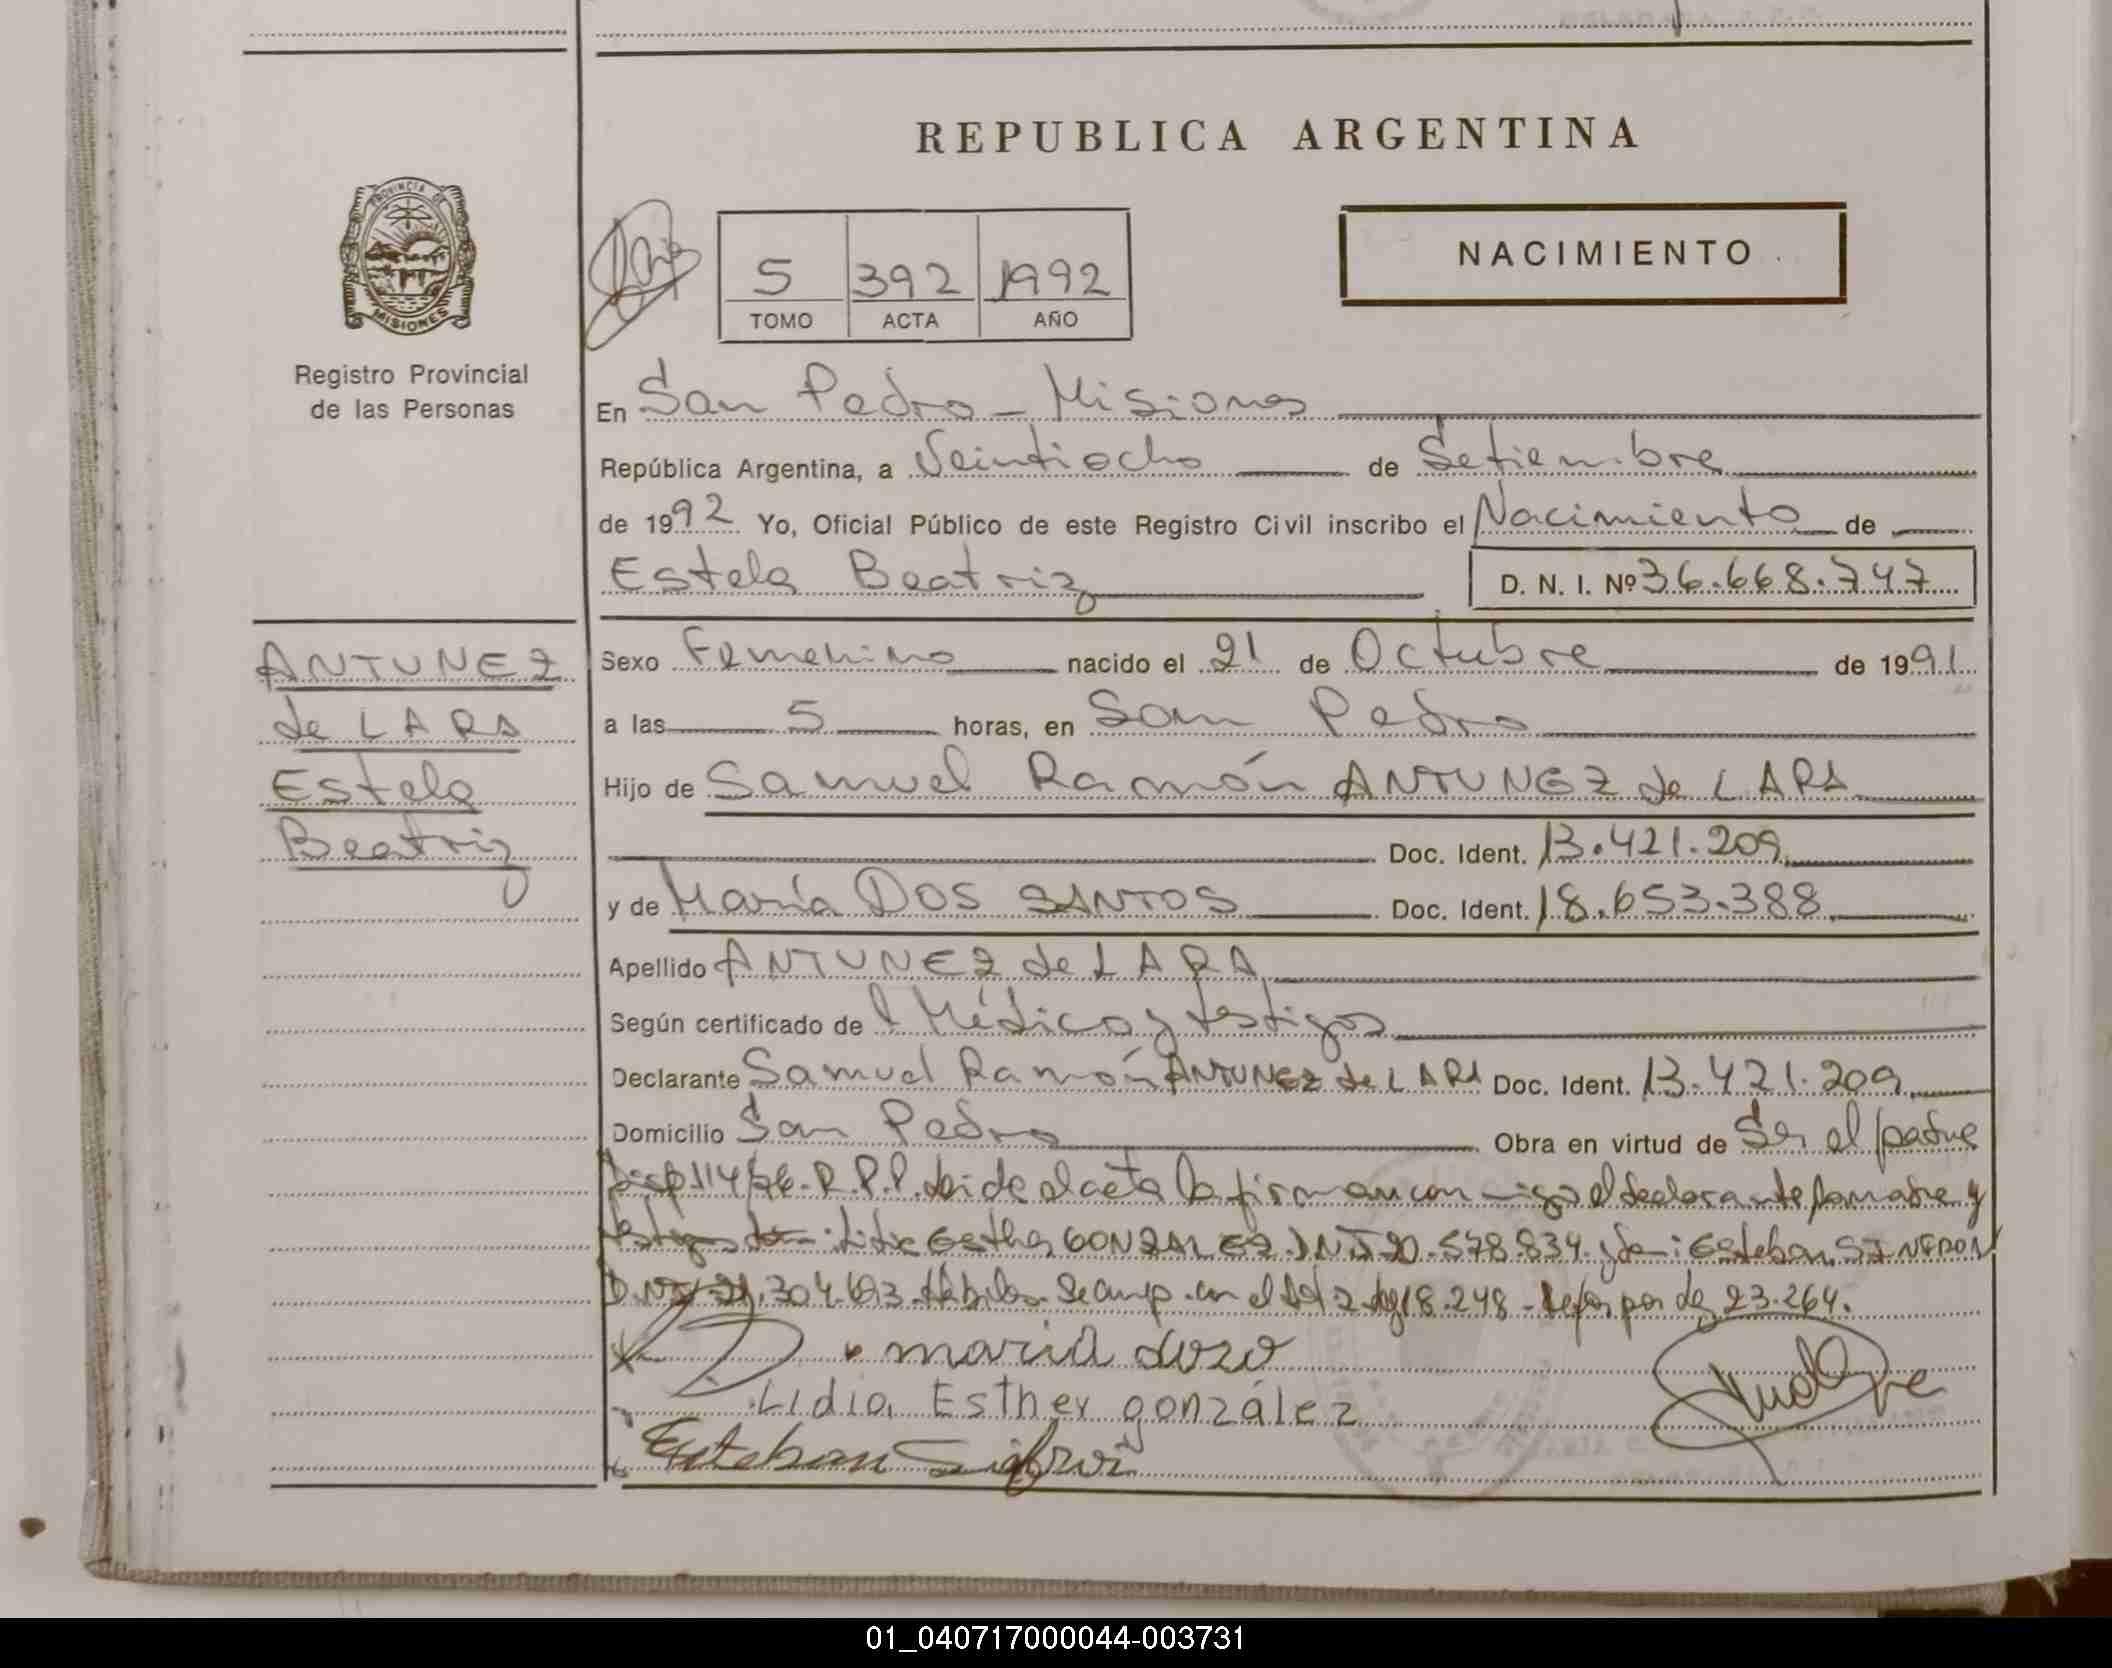 REPUBLICA ARGENTINA
NACIMIENTO
PROVINCIA DE
MISIONES
Registro Provincial
de las Personas
5 392 1992
TOMO ACTA AÑO
En San Pedro - Misiones
República Argentina, a Veintiocho de Setiembre
de 1992 Yo, Oficial Público de este Registro Civil inscribo el Nacimiento de
Estela Beatriz D. N. I. Nº 36.668.747
ANTUNEZ
de LARA
Estela
Beatriz
Sexo Femenino nacido el 21 de Octubre de 1991
a las 5 horas, en San Pedro
Hijo de Samuel Ramón ANTUNEZ de LARA
Doc. Ident. 13.421.209
y de María DOS SANTOS Doc. Ident. 18.653.388
Apellido ANTUNEZ de LARA
Según certificado de Médico y testigos
Declarante Samuel Ramón ANTUNEZ de LARA Doc. Ident. 13.421.209
Domicilio San Pedro Obra en virtud de Ser el padre
R.P.P. el acta la firman con migo el declarante la madre y
testigos GONZALEZ 20.578.834 Esteban
Habiles el 18.248 - por 23.264.
maria
Lidia Esther gonzález
Esteban
01_040717000044-003731